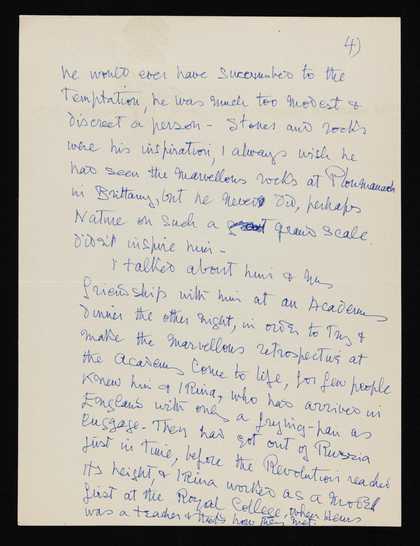 4)
he would ever have succumbed to the
temptation, he was much too modest &
discreet a person - Stones and rocks
were his inspiration, I always wish he
had seen the marvellous rocks at Ploumanach
in Brittany, but he never did, perhaps
Nature on such a grand scale
didn't inspire him -
I talked about him & my
friendship with him at an Academy
dinner the other night, in order to try &
make the marvellous retrospective at
the Academy come to life, for few people
knew him & Irina, who had arrived in
England with only a frying-pan as
luggage. They had got out of Russia
just in time, before the Revolution reached
its height, & Irina worked as a model
first at the Royal College, where Henry
was a teacher & that's how they met.